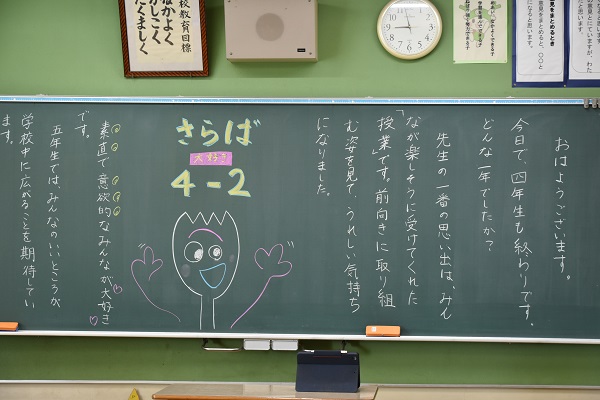 校教育目標
なかよく
かしこく
たくましく
意見をまとめるとき
おはようございます。
今日で、四年生も終わりです。
どんな一年でしたか?
先生の一番の思い出は、みん
なが楽しそうに受けてくれた
「授業」です。前向きに取り組
む姿を見て、うれしい気持ち
になりました。
さらば
大好き
4-2
素直で意欲的なみんなが大好き
です。
五年生では、みんなのいいところが
学校中に広がることを期待してい
ます。